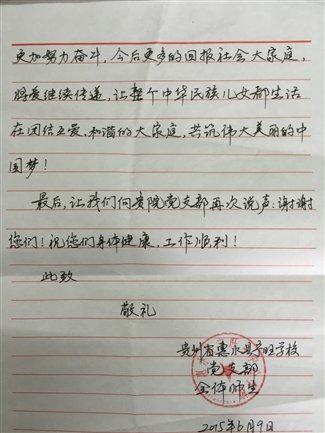 更加努力奋斗，今后更多的回报社会大家庭，
将爱继续传递，让整个中华民族儿女都生活
在团结互爱、和谐的大家庭，共筑伟大美丽的中
国梦！
最后，让我们向贵院党支部再次说声：谢谢
您们！祝您们身体健康，工作顺利！
此致
敬礼
贵州省惠水县 学校
党支部
全体师生
2015年6月9日